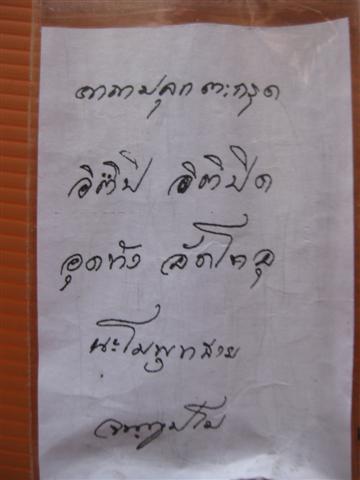 คาถาปลุกตะกรุด
อิติปิ อิติปิด
อุดทัง อัดโทอุ
นะโมพุทธาย